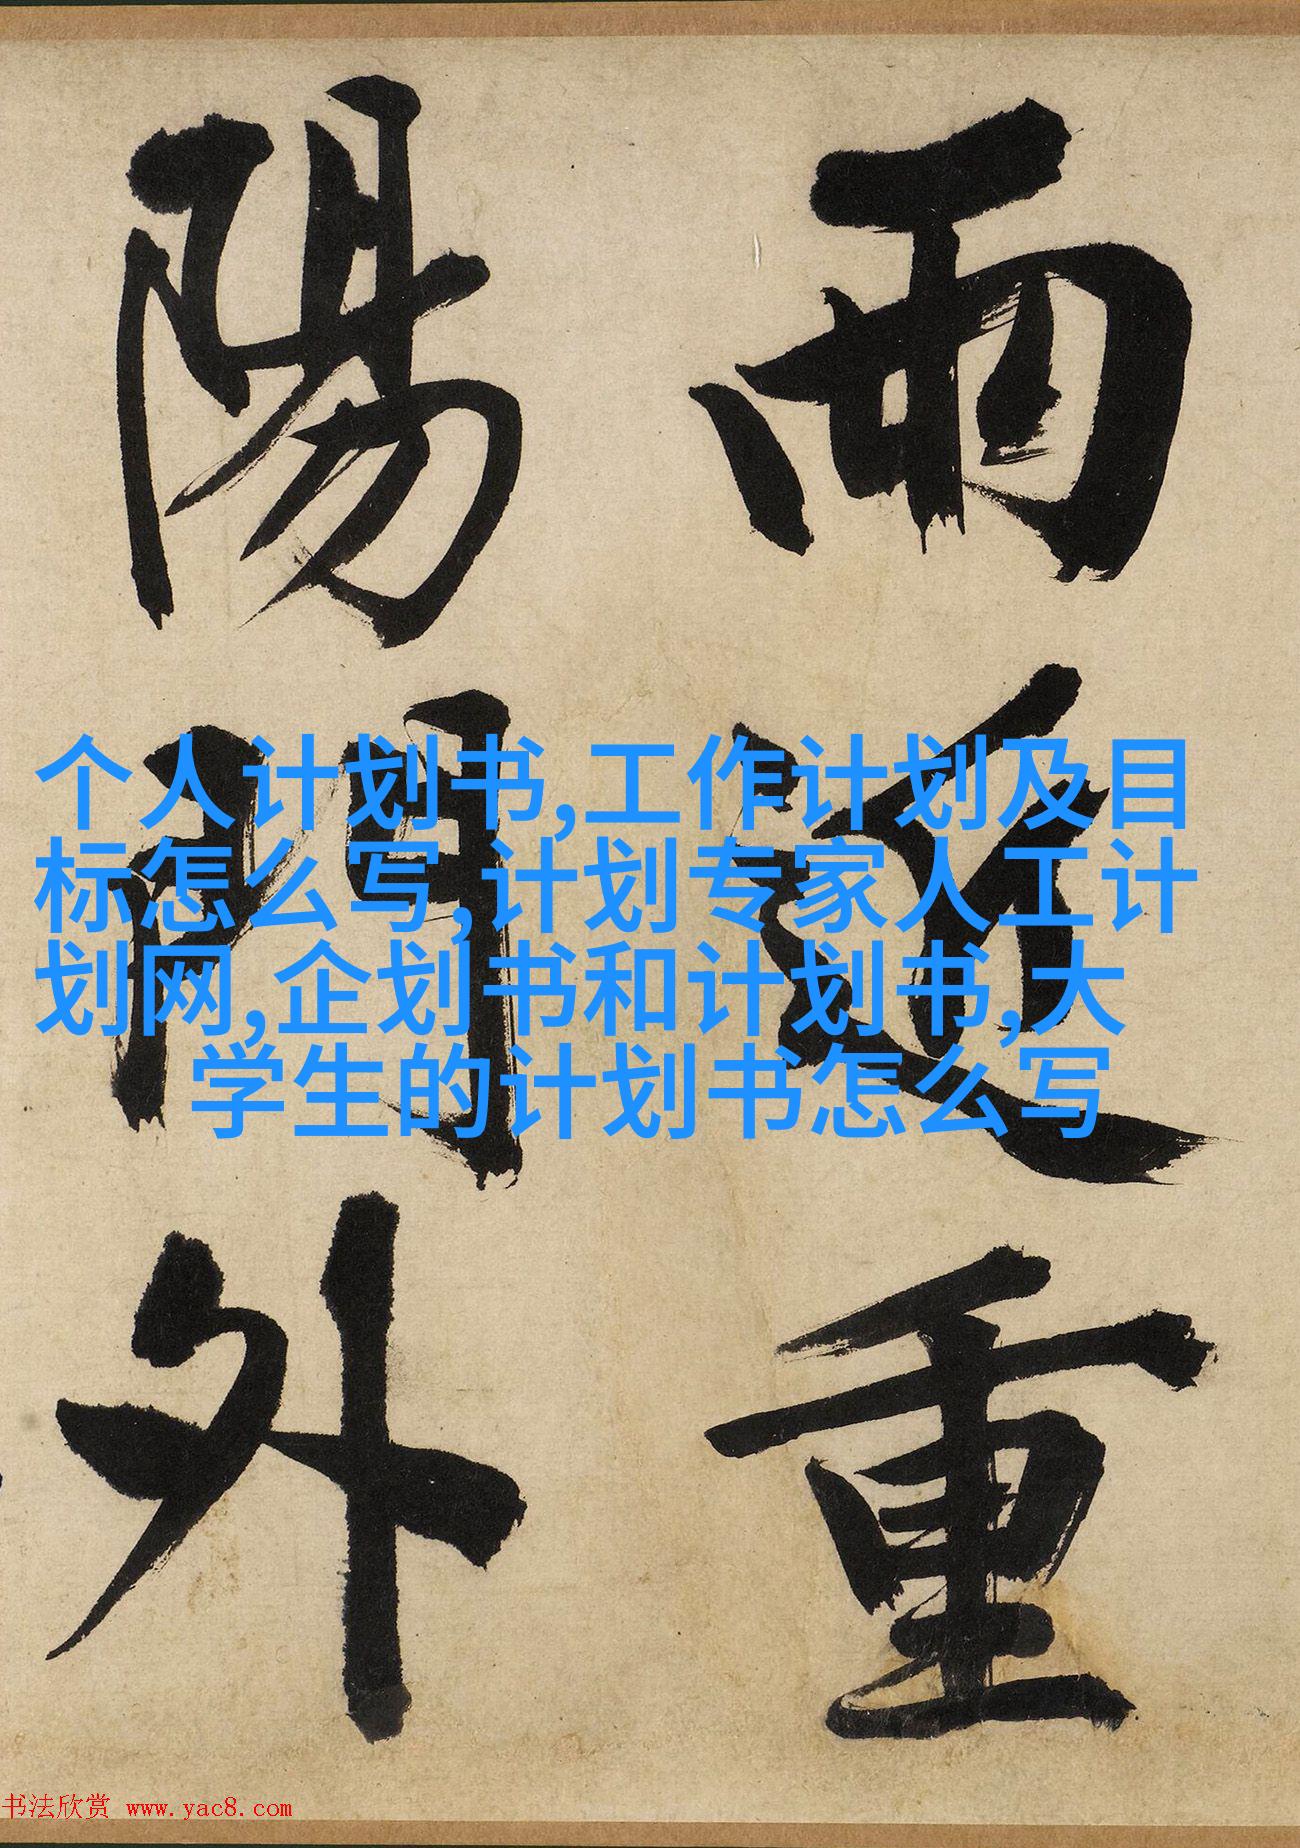 雨近重
陽門外
个人计划书,工作计划及目
标怎么写,计划专家人工计
划网,企划书和计划书,大
学生的计划书怎么写
书法欣赏 www.yac8.com